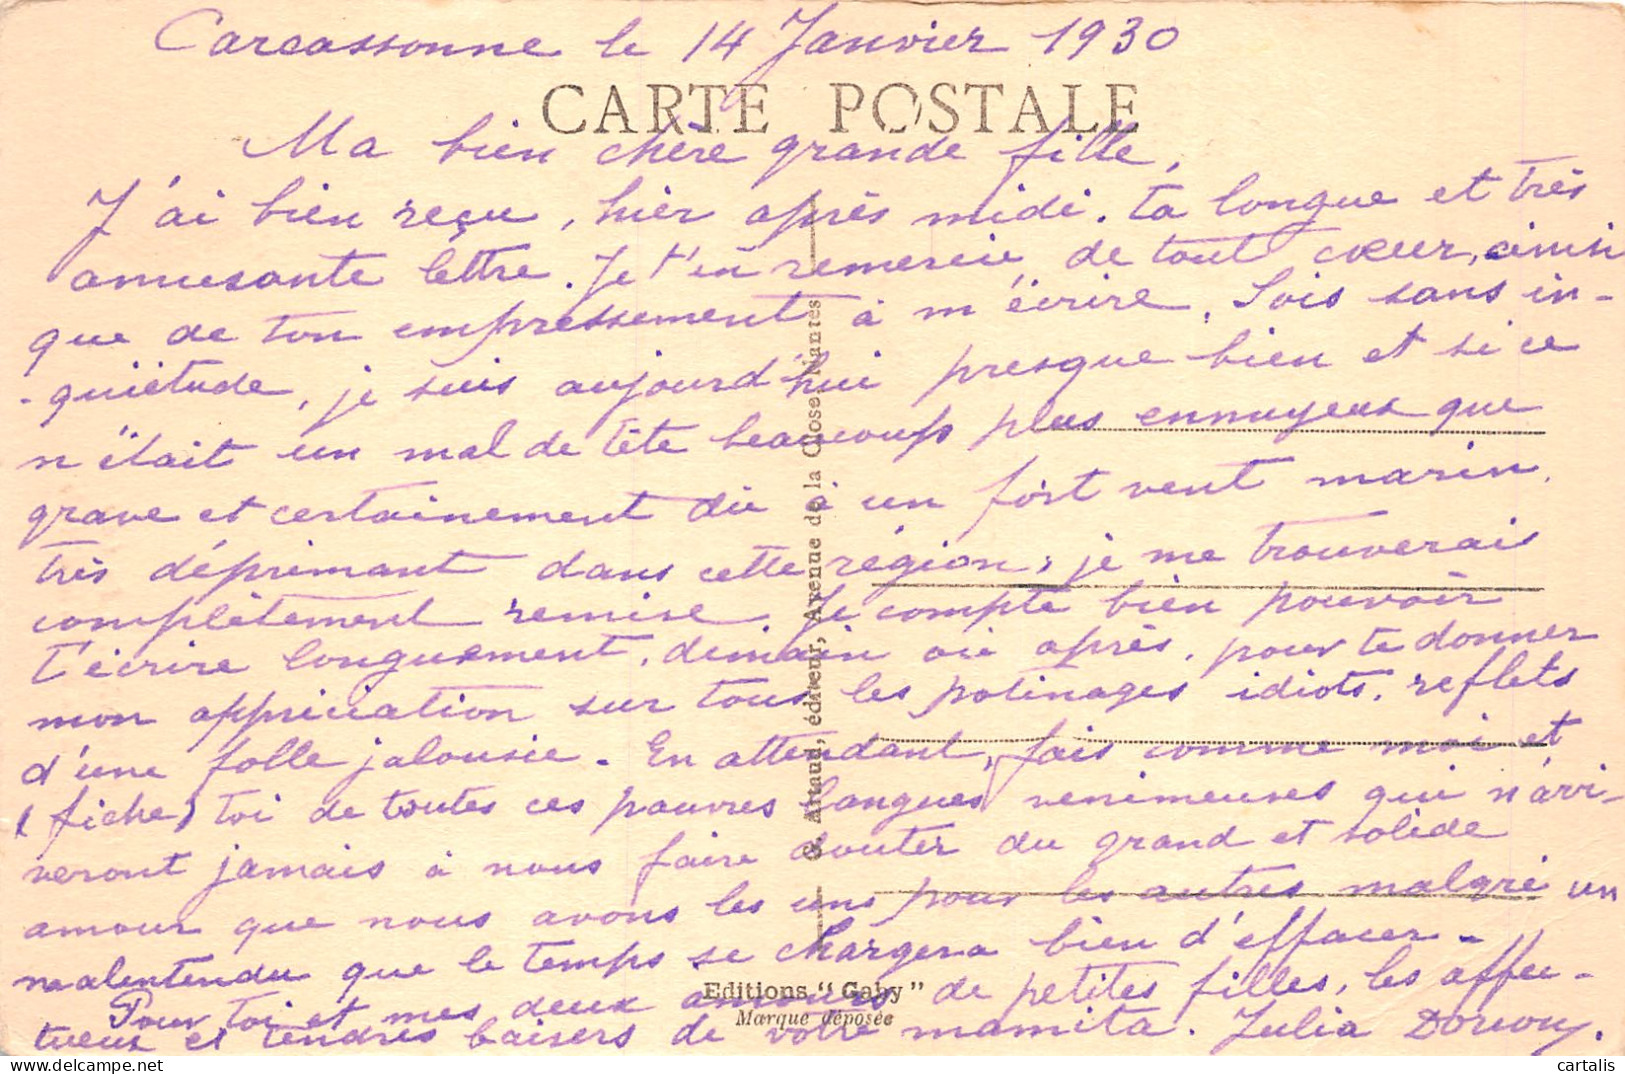 Carcassonne le 14 Janvier 1930
CARTE POSTALE
Ma bien chère grande fille,
J'ai bien reçu, hier après midi, ta longue et très
amusante lettre. Je t'en remercie, de tout cœur, ainsi
que de ton empressement à m'écrire. Sois sans in-
-quiétude, je suis aujourd'hui presque bien et si ce
n'était un mal de tête beaucoup plus ennuyeux que
grave et certainement dû à un fort vent marin,
très déprimant dans cette région, je me trouverais
complètement remise. Je compte bien pouvoir
t'écrire longuement, demain ou après, pour te donner
mon appréciation sur tous les potinages idiots, reflets
d'une folle jalousie. En attendant, fais comme moi et
(fiche) toi de toutes ces pauvres langues venimeuses qui n'arri-
veront jamais à nous faire douter du grand et solide
amour que nous avons les uns pour les autres malgré un
malentendu que le temps se chargera bien d'effacer.
Pour toi et mes deux amours de petites filles, les affec-
tueux et tendres baisers de votre mamita. Julia
G. Artaud, éditeur, Avenue de la Close, Nantes
Editions "Gaby"
Marque déposée
cartalis